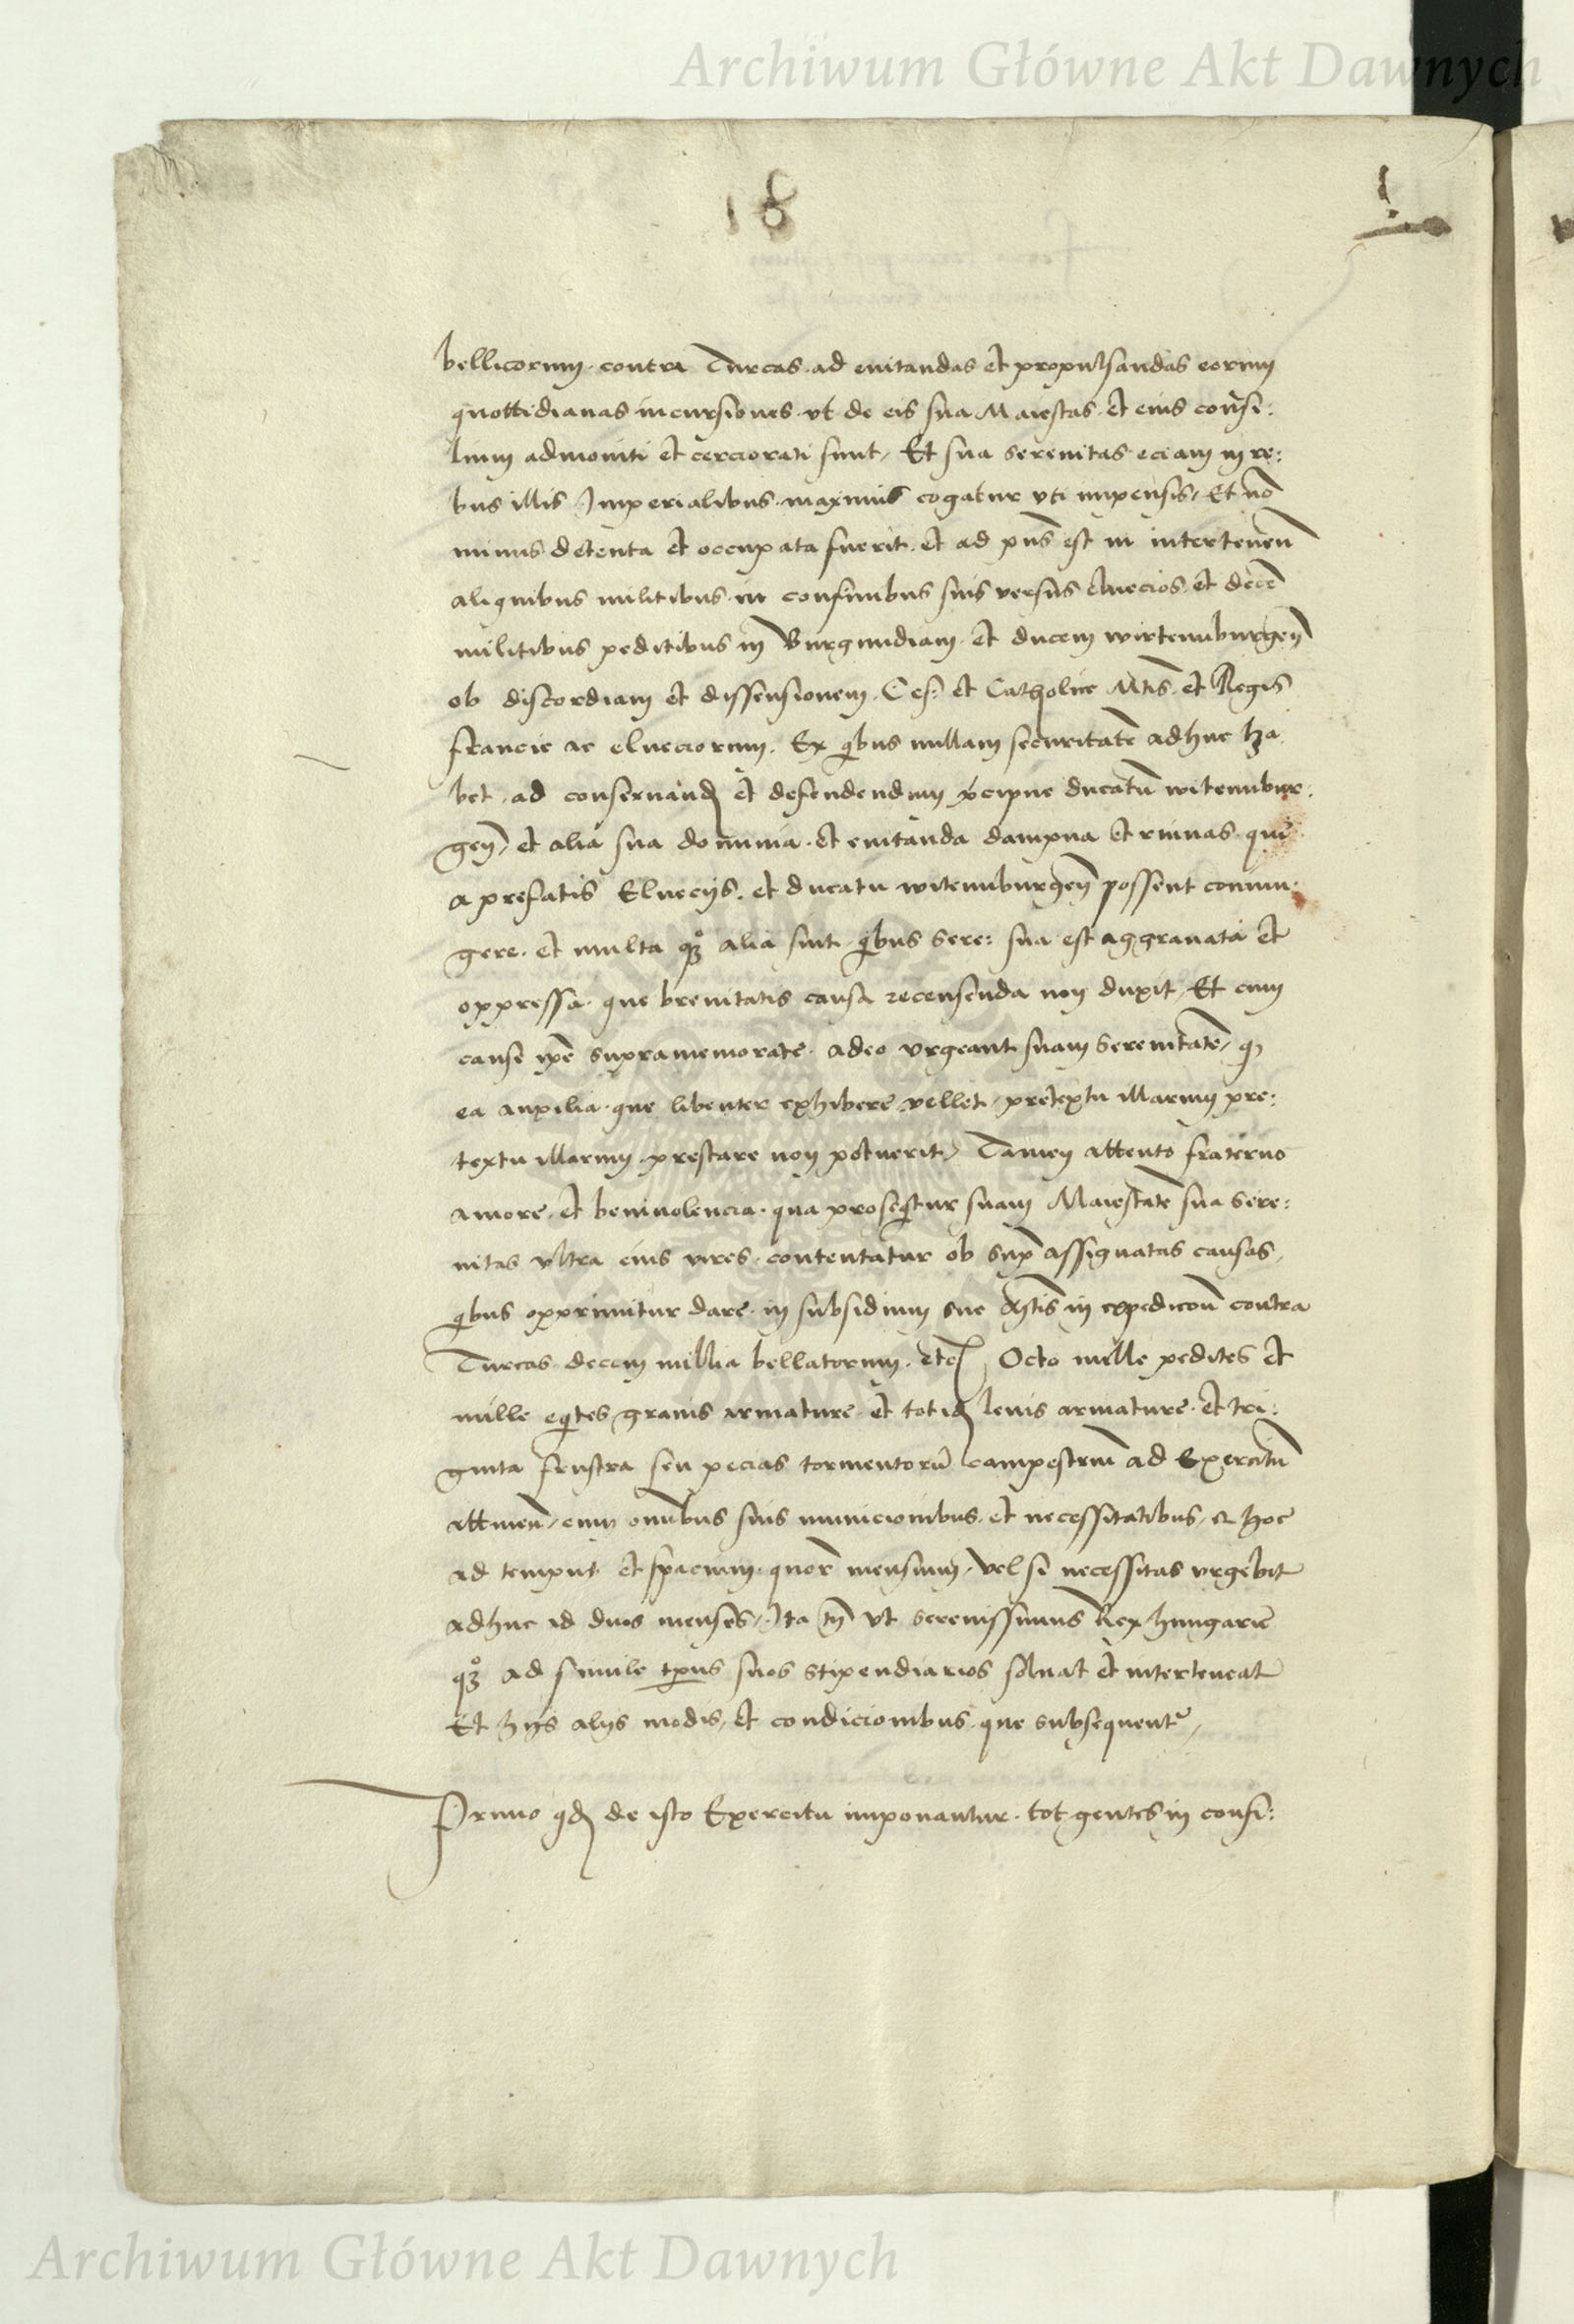 Archiwum Główne Akt Dawnych
18
bellicorum. contra Turcas. ad euitandas et propulsandas eorum
quottidianas incursiones. vt de eis sua Maiestas. et eius consi:
lium admoniti et cerciorati sunt, Et sua serenitas eciam in re:
bus illis Imperialibus. maximis cogatur vti impensis, Et no
minus detenta et occupata fuerit. et ad pns est in interteneñ
aliquibus militibus in confinibus suis versus eluecios. et decē
militibus peditibus in Burgundiam. et ducem wirtenburgeñ
ob discordiam et dissensionem. Ces: et Catholice Mtis. et Regis
francie ac elueciorum. Ex qibus nullam securitatē adhuc ha
bet. ad conseruand et defendendum pcipue ducatū witenbur:
geñ, et alia sua dominia. et euitanda dampna et ruinas. que
a prefatis Elueciis. et ducatu witenburgeñ possent contin:
gere. et multa qz alia sint. qibus sere: sua est aggrauata et
oppressa. que breuitatis causa recensenda non duxit, Et cum
cause ipe supramemorate. adeo vrgeant suam serenitatē, q
ea auxilia. que libenter exhibere vellet, pretextu illarum pre:
textu illarum. prestare non potuerit, Tamen attento fraterno
amore. et beniuolencia. qua proseqtur suam Maiestatē sua sere:
nitas vltra eius vires. contentatur ob sup assignatas causas,
qibus opprimitur dare. in subsidium sue Mtis in expedicoñ contra
Turcas decem millia bellatorum. Octo mille pedites et
mille eqtes grauis armature. et totid leuis armature. et tri:
ginta frustra seu pecias tormentorū campestriū ad Exercitū
attineñ, cum omibus suis municionibus. et necessitatibus, hoc
ad tempus et spacium. quor mensium, vel si necessitas vrgebit
adhuc ad duos menses, Ita tñ vt serenissimus Rex hungarie
qz ad simile tpus suos stipendiarios soluat et interteneat
Et hijs alijs modis, et condicionibus. que subsequentur,
Primo qd de isto Exercitu imponantur. tot gentes in confi:
Archiwum Główne Akt Dawnych